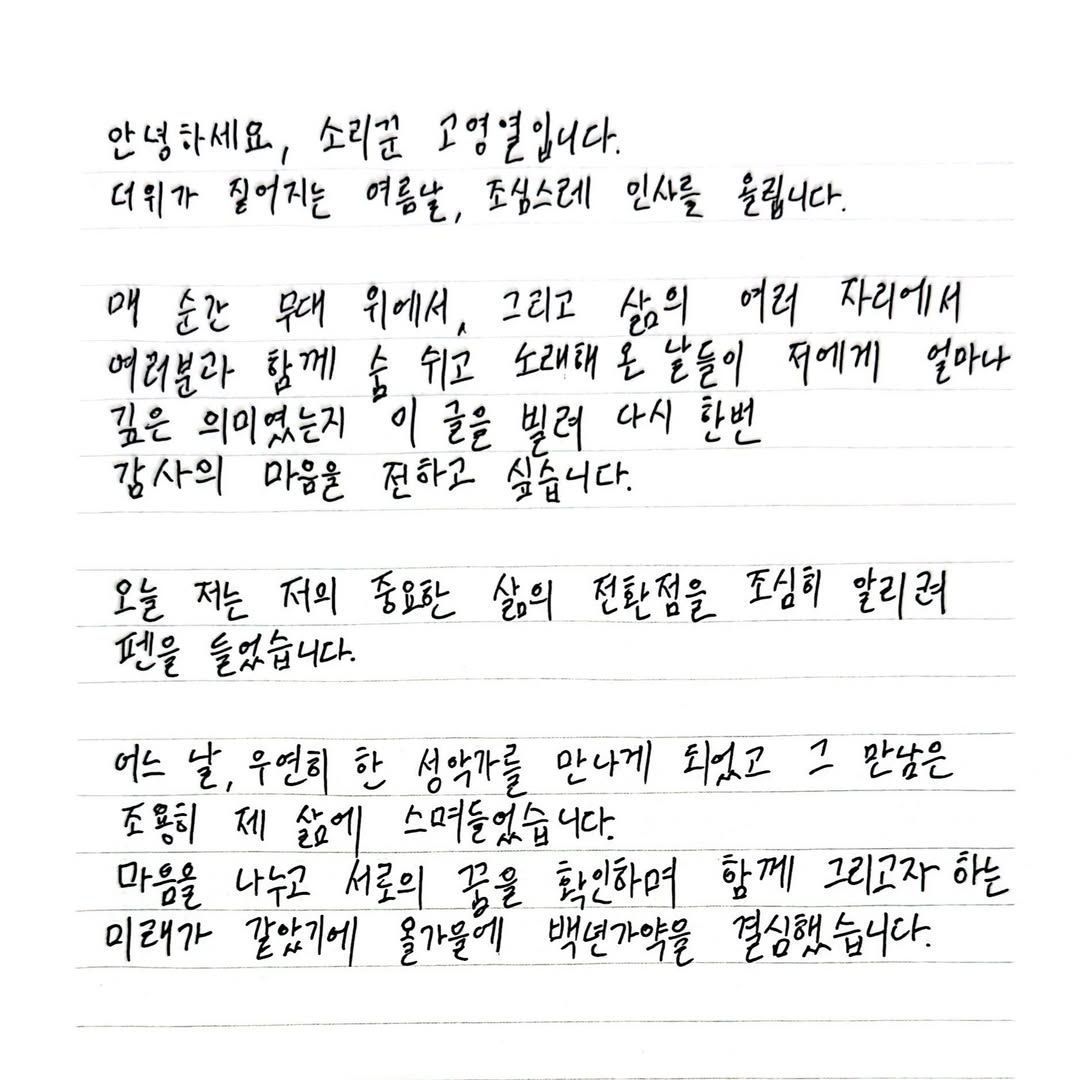 안녕하세요, 소리꾼 고영열입니다.
더위가 짙어지는 여름날, 조심스레 인사를 올립니다.
매 순간 무대 위에서, 그리고 삶의 여러 자리에서
여러분과 함께 숨 쉬고 노래해 온 날들이 저에게 얼마나
깊은 의미였는지 이 글을 빌려 다시 한번
감사의 마음을 전하고 싶습니다.
오늘 저는 저의 중요한 삶의 전환점을 조심히 알리려
펜을 들었습니다.
어느 날, 우연히 한 성악가를 만나게 되었고 그 만남은
조용히 제 삶에 스며들었습니다.
마음을 나누고 서로의 꿈을 확인하며 함께 그리고자 하는
미래가 같았기에 올가을에 백년가약을 결심했습니다.